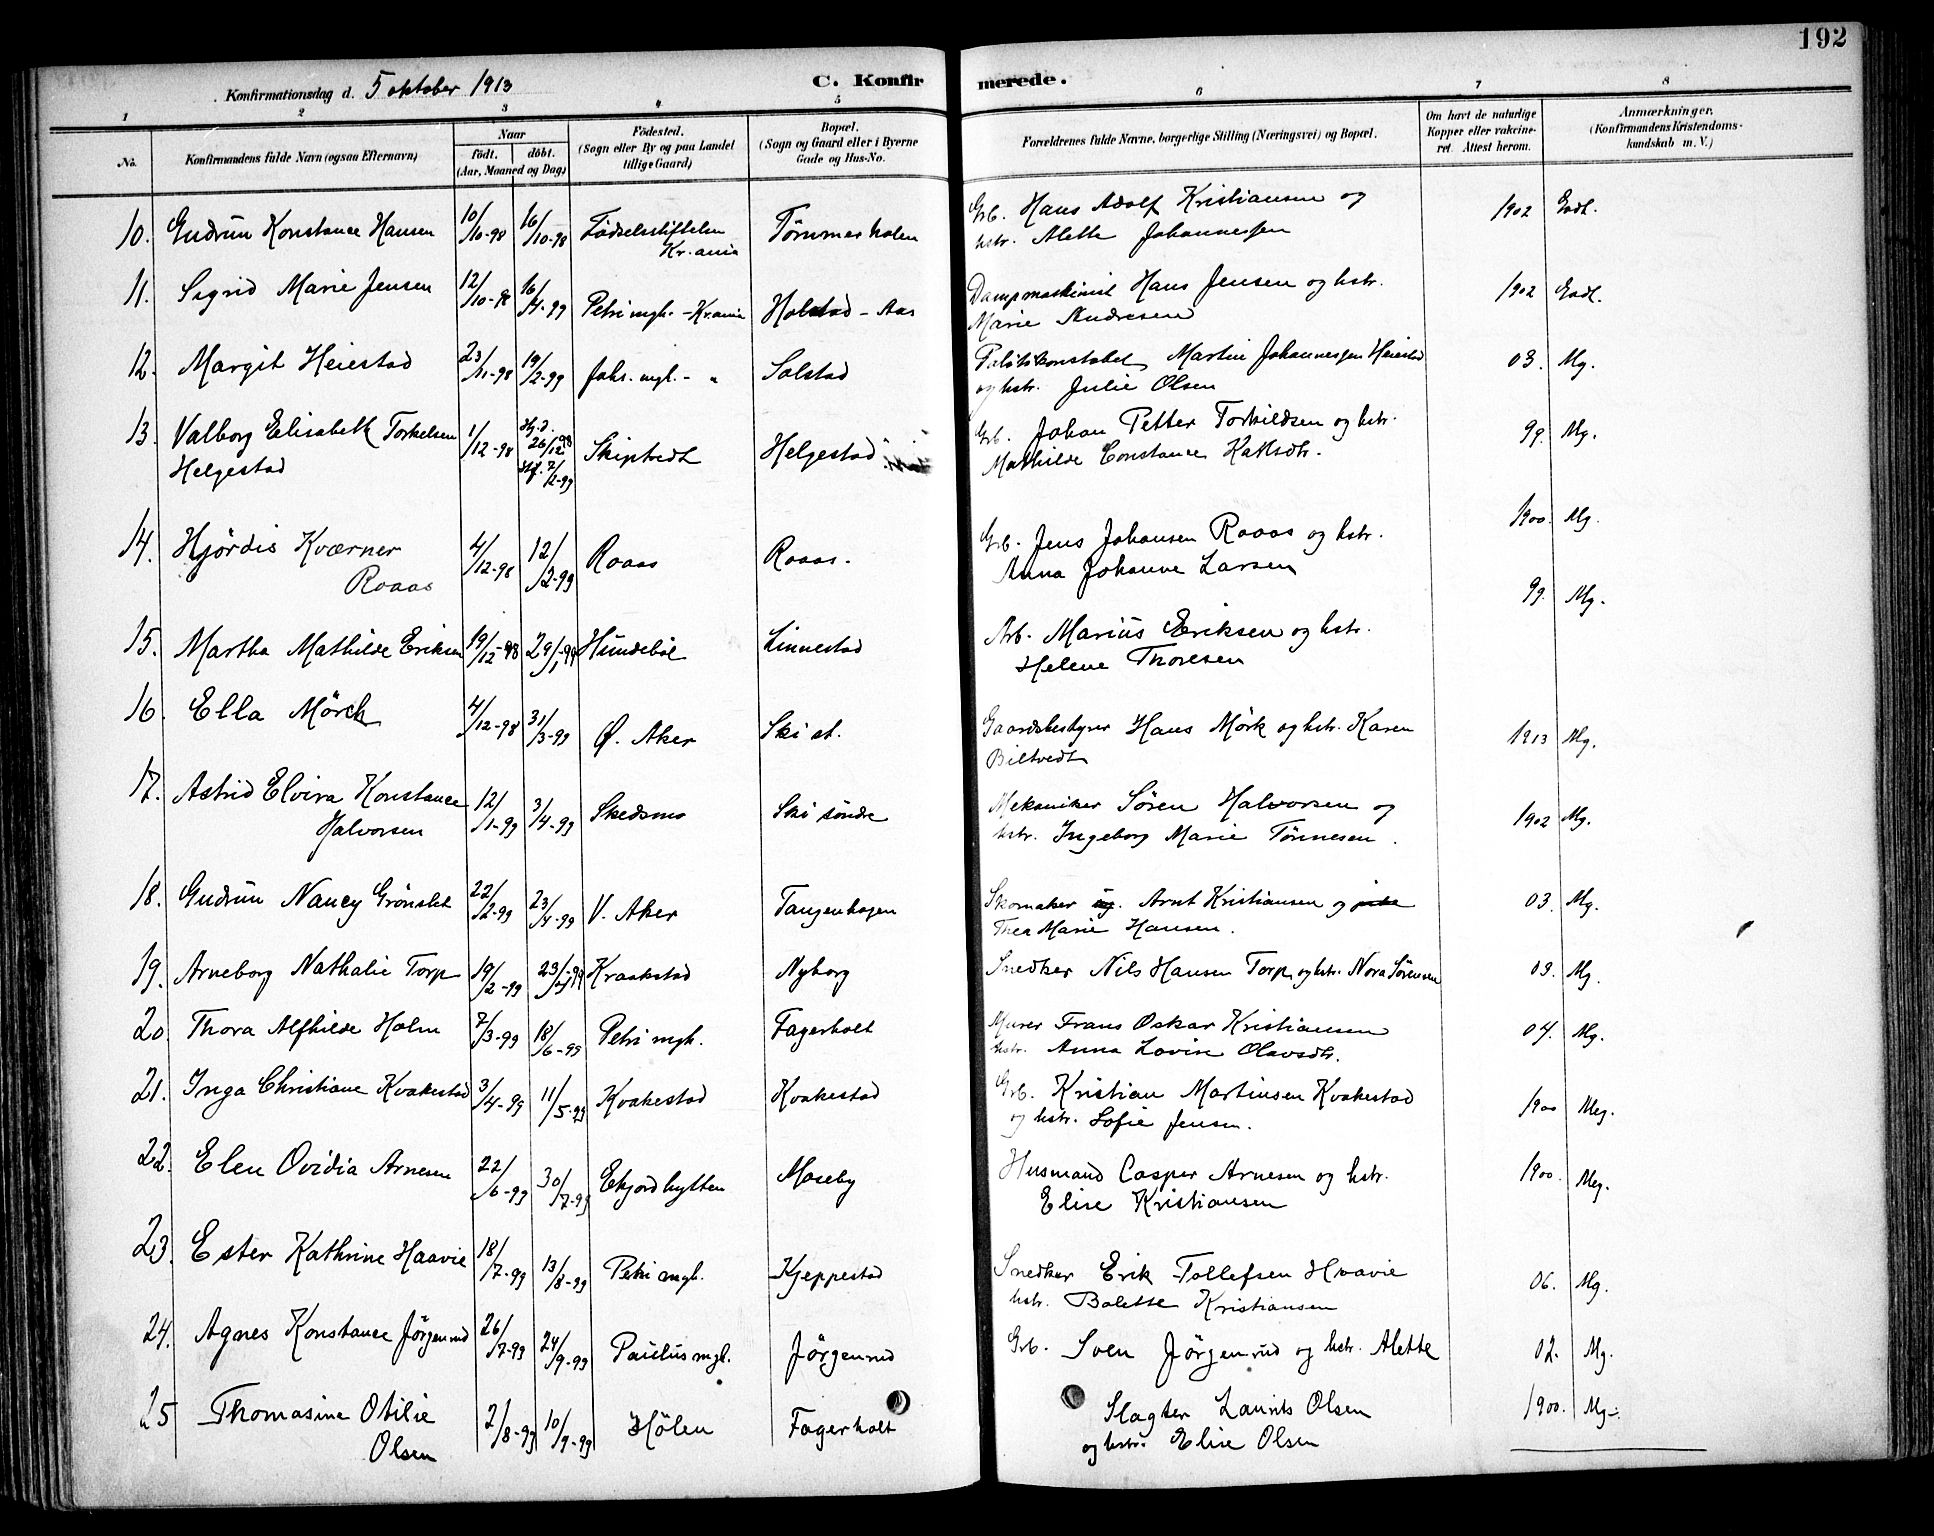 192
Konfirmationsdag d. 5 oktober 1913
C. Konfirmerede.
1 2 3 4 5 6 7 8
No.
Konfirmandens fulde Navn (ogsaa Efternavn)
Naar
født. døbt.
(Aar, Maaned og Dag)
Fødested.
(Sogn eller By og paa Landet
tillige Gaard)
Bopæl.
(Sogn og Gaard eller i Byerne
Gade og Hus-No.
Forældrenes fulde Navne, borgerlige Stilling (Næringsvei) og Bopæl.
Om havt de naturlige
Kopper eller vakcine-
ret. Attest herom.
Anmærkninger.
(Konfirmandens Kristendoms-
kundskab m. V.)
10. Gudrun Konstance Hansen 10/10-98 16/10-98 Fødselsstiftelen Kr.ania Tømmerholen Grb. Hans Adolf Kristiansen og
hstr. Alette Johannessen 1902 Godt.
11. Sigrid Marie Jensen 12/10-98 16/4-99 Petri mgh. - Kr.ania Holstad - Aas Dampmaskinist Hans Jensen og hstr.
Marie Andresen 1902 Godt.
12. Margit Heiestad 23/11-98 19/2-99 Johs. mgl. - " Solstad Politikonstabel Martin Johannessen Heiestad
og hstr. Julie Olsen 03. Mg.
13. Valborg Elisabeth Torkelsen
Helgestad 1/12-98 Hj.d. 26/12 98 Stf. 7/2-99 Skiptvedt Helgestad Grb. Johan Petter Torkildsen og hstr.
Mathilde Constance Kathsdtr. 99. Mg.
14. Hjørdis Kværner
Roaas 4/12-98 12/2-99 Roaas Roaas. Grb. Jens Johansen Roaas og hstr.
Anna Johanne Larsen 1900. Mg.
15. Martha Mathilde Eriksen 19/12-98 29/1-99 Hundebøl Linnestad Arb. Marius Eriksen og hstr.
Helene Thoresen 99. Mg.
16. Ella Mørch 4/12-98 31/3-99 Ø. Aker Ski st. Gaardsbestyrer Hans Mørk og hstr. Karen
Biltvedt 1913 Mg.
17. Astrid Elvira Konstance
Halvorsen 12/1-99 3/4-99 Skedsmo Ski søndre Mekaniker Søren Halvorsen og
hstr. Ingeborg Marie Tønnesen. 1902 Mg.
18. Gudrun Nancy Grønslet 22/2-99 23/4-99 V. Aker Tangenhagen Skomaker ug. Arnt Kristiansen og
Thea Marie Hansen. 03. Mg.
19. Arneborg Nathalie Torp 19/2-99 23/4-99 Kraakstad Nyborg Snedker Nils Hansen Torp og hstr. Nora Sørensen 03. Mg.
20. Thora Alfhilde Holm 7/3-99 18/6-99 Petri mgh. Fagerholt Murer Frans Oskar Kristiansen
hstr. Anna Lovise Olavsdtr. 04. Mg.
21. Inga Christiane Kvakestad 3/4-99 11/5-99 Kvakestad Kvakestad Grb. Kristian Martinsen Kvakestad
og hstr. Sofie Jensen. 1900 Meg.
22. Elen Ovidia Arnesen 22/6-99 30/7-99 Ekjordhytten Moseby Husmand Casper Arnesen og hstr.
Elise Kristiansen 1900. Meg.
23. Ester Kathrine Haavie 18/7-99 13/8-99 Petri mgh. Kjeppestad Snedker Erik Tollefsen Haavie
hstr. Bolette Kristiansen 06. Mg.
24. Agnes Konstance Jørgenrud 26/7-99 24/9-99 Paulus mgl. Jørgenrud Grb. Sven Jørgenrud og hstr. Alette 02. Mg.
25 Thomasine Otilie
Olsen 2/8-99 10/9-99 Hølen Fagerholt Slagter Laurits Olsen
og hstr. Elise Olsen 1900. Mg.